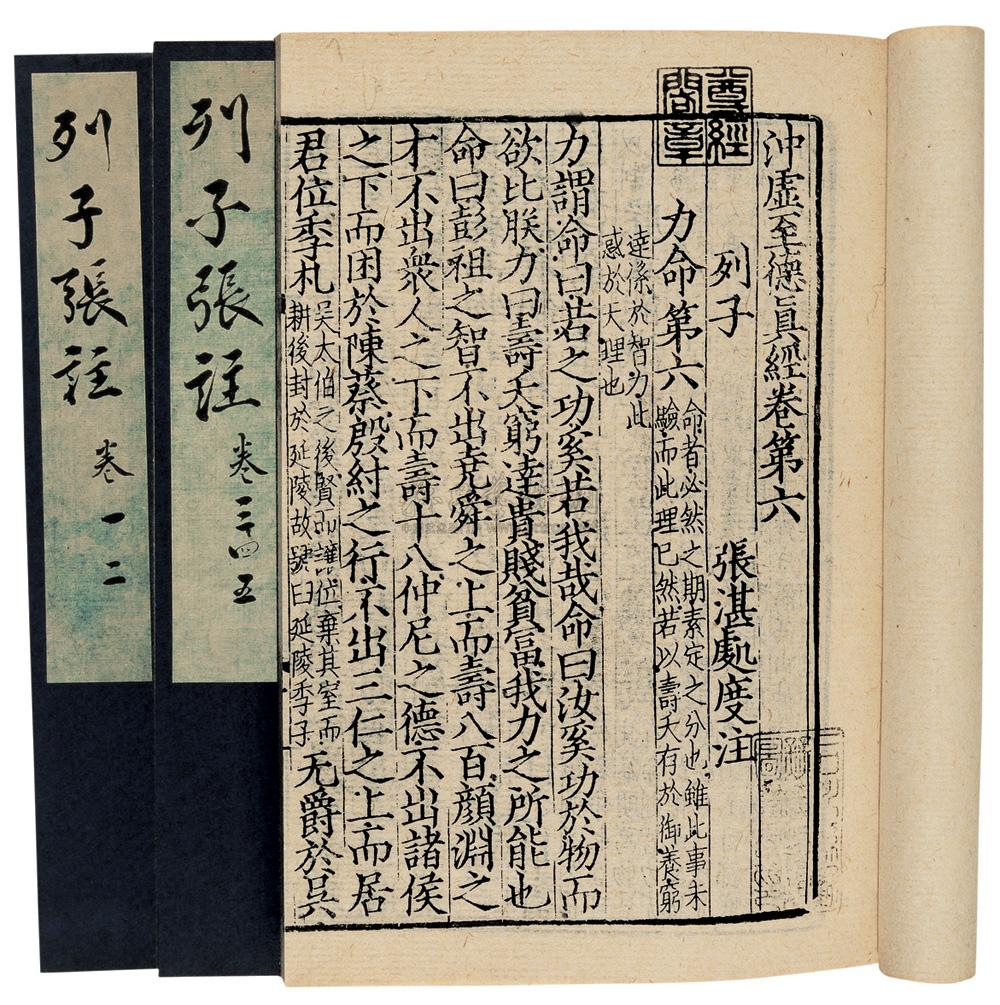 沖虛至德真經卷第六
尊經
閣章
列子　張湛處度注
力命第六
命者必然之期素定之分也雖此事未
驗而此理已然若以壽夭有於御養窮
達係於智力此
感於大理也
力謂命曰若之功奚若我哉命曰汝奚功於物而
欲比朕力曰壽夭窮達貴賤貧富我力之所能也
命曰彭祖之智不出堯舜之上而壽八百顏淵之
才不出衆人之下而壽十八仲尼之德不出諸侯
之下而困於陳蔡殷紂之行不出三仁之上而居
君位季札
吳太伯之後賢而讓位棄其室而
耕後封於延陵故號曰延陵季子
无爵於吳
列子張註　卷三四五
列子張註　卷一二